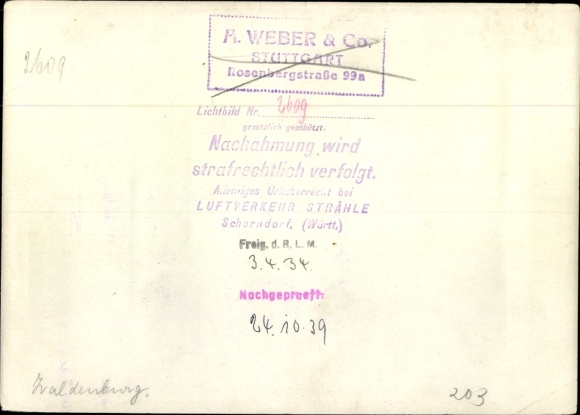 2609
A. WEBER & Co.
STUTTGART
Rosenbergstraße 99a
Lichtbild Nr. 2609
gesetzlich geschützt.
Nachahmung wird
strafrechtlich verfolgt.
Alleiniges Urheberrecht bei
LUFTVERKEHR STRÄHLE
Schorndorf, (Württ.)
Freig. d. R. L. M.
3.4.34
Nachgeprueft:
24.10.39
Waldenburg.
203